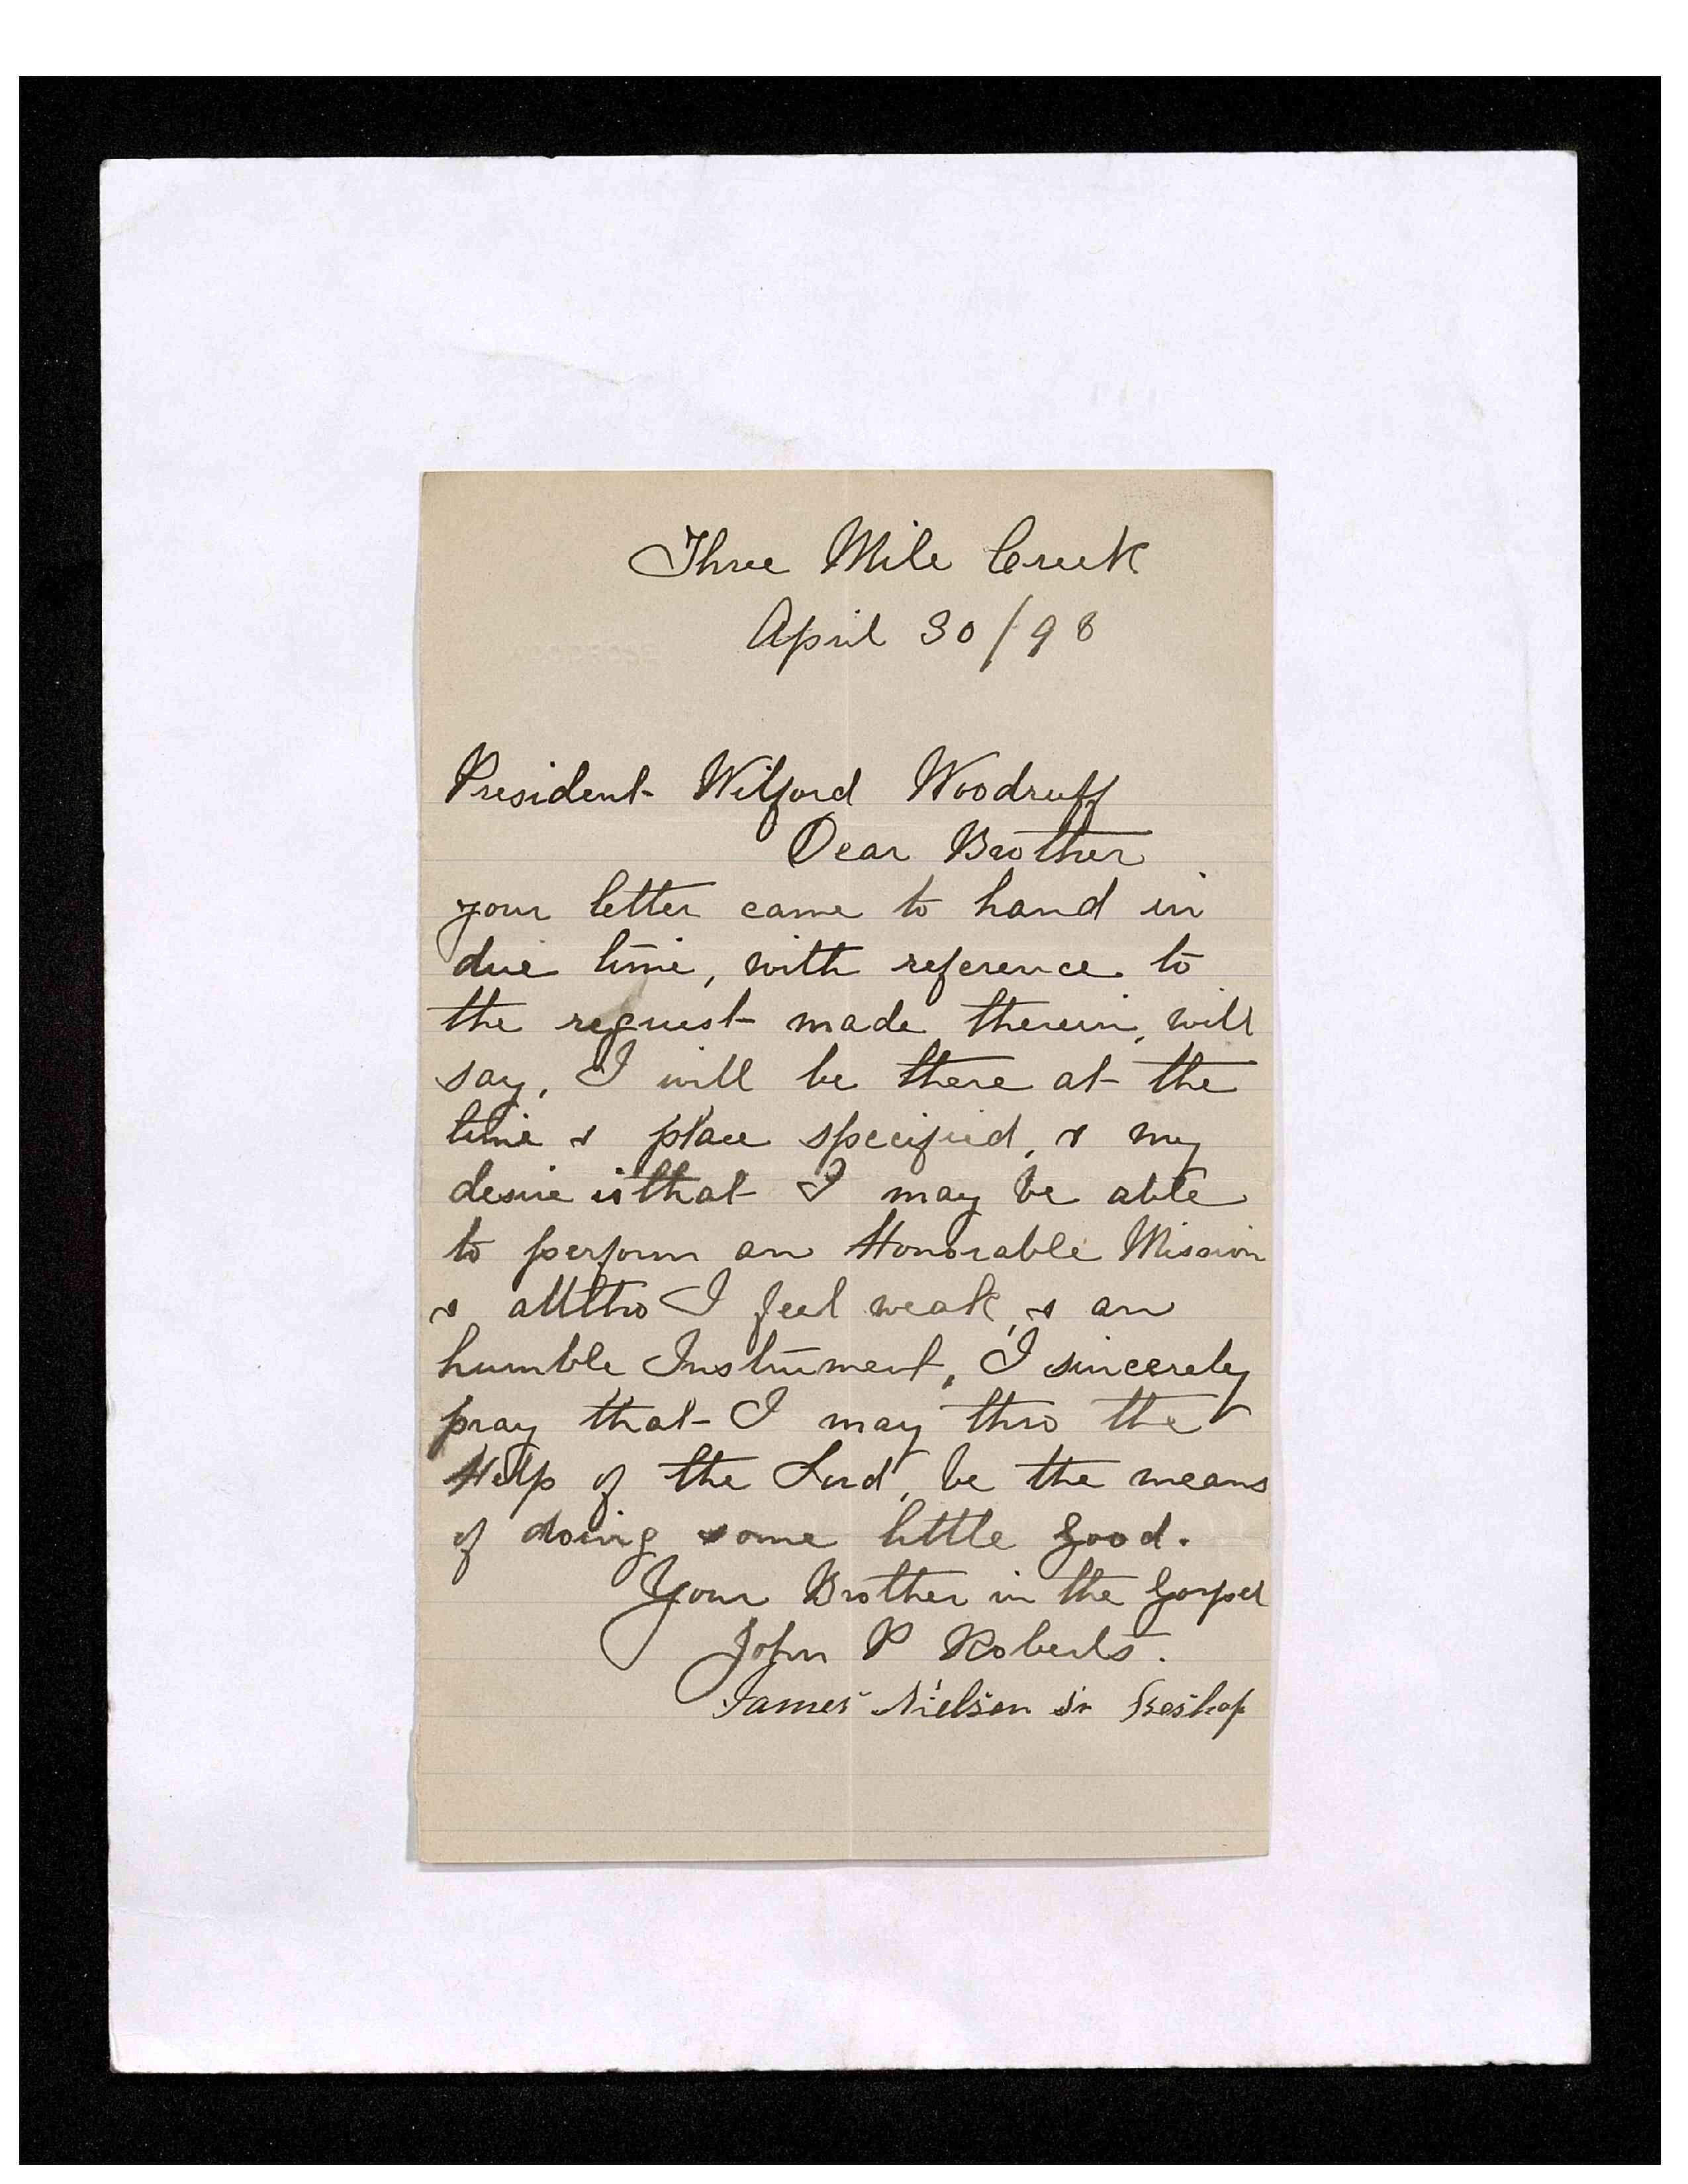 Three Mile Creek
April 30/98
President Wilford Woodruff
Dear Brother
your letter came to hand in
due time, with reference to
the request made therein, will
say, I will be there at the
time & place specified, & my
desire is that I may be able
to perform an Honorable Mission
& alltho I feel weak, & an
humble Instrument, I sincerely
pray that I may thro the
Help of the Lord, be the means
of doing some little good.
Your Brother in the Gospel
John P Roberts.
James Nielsen Sr Beshop